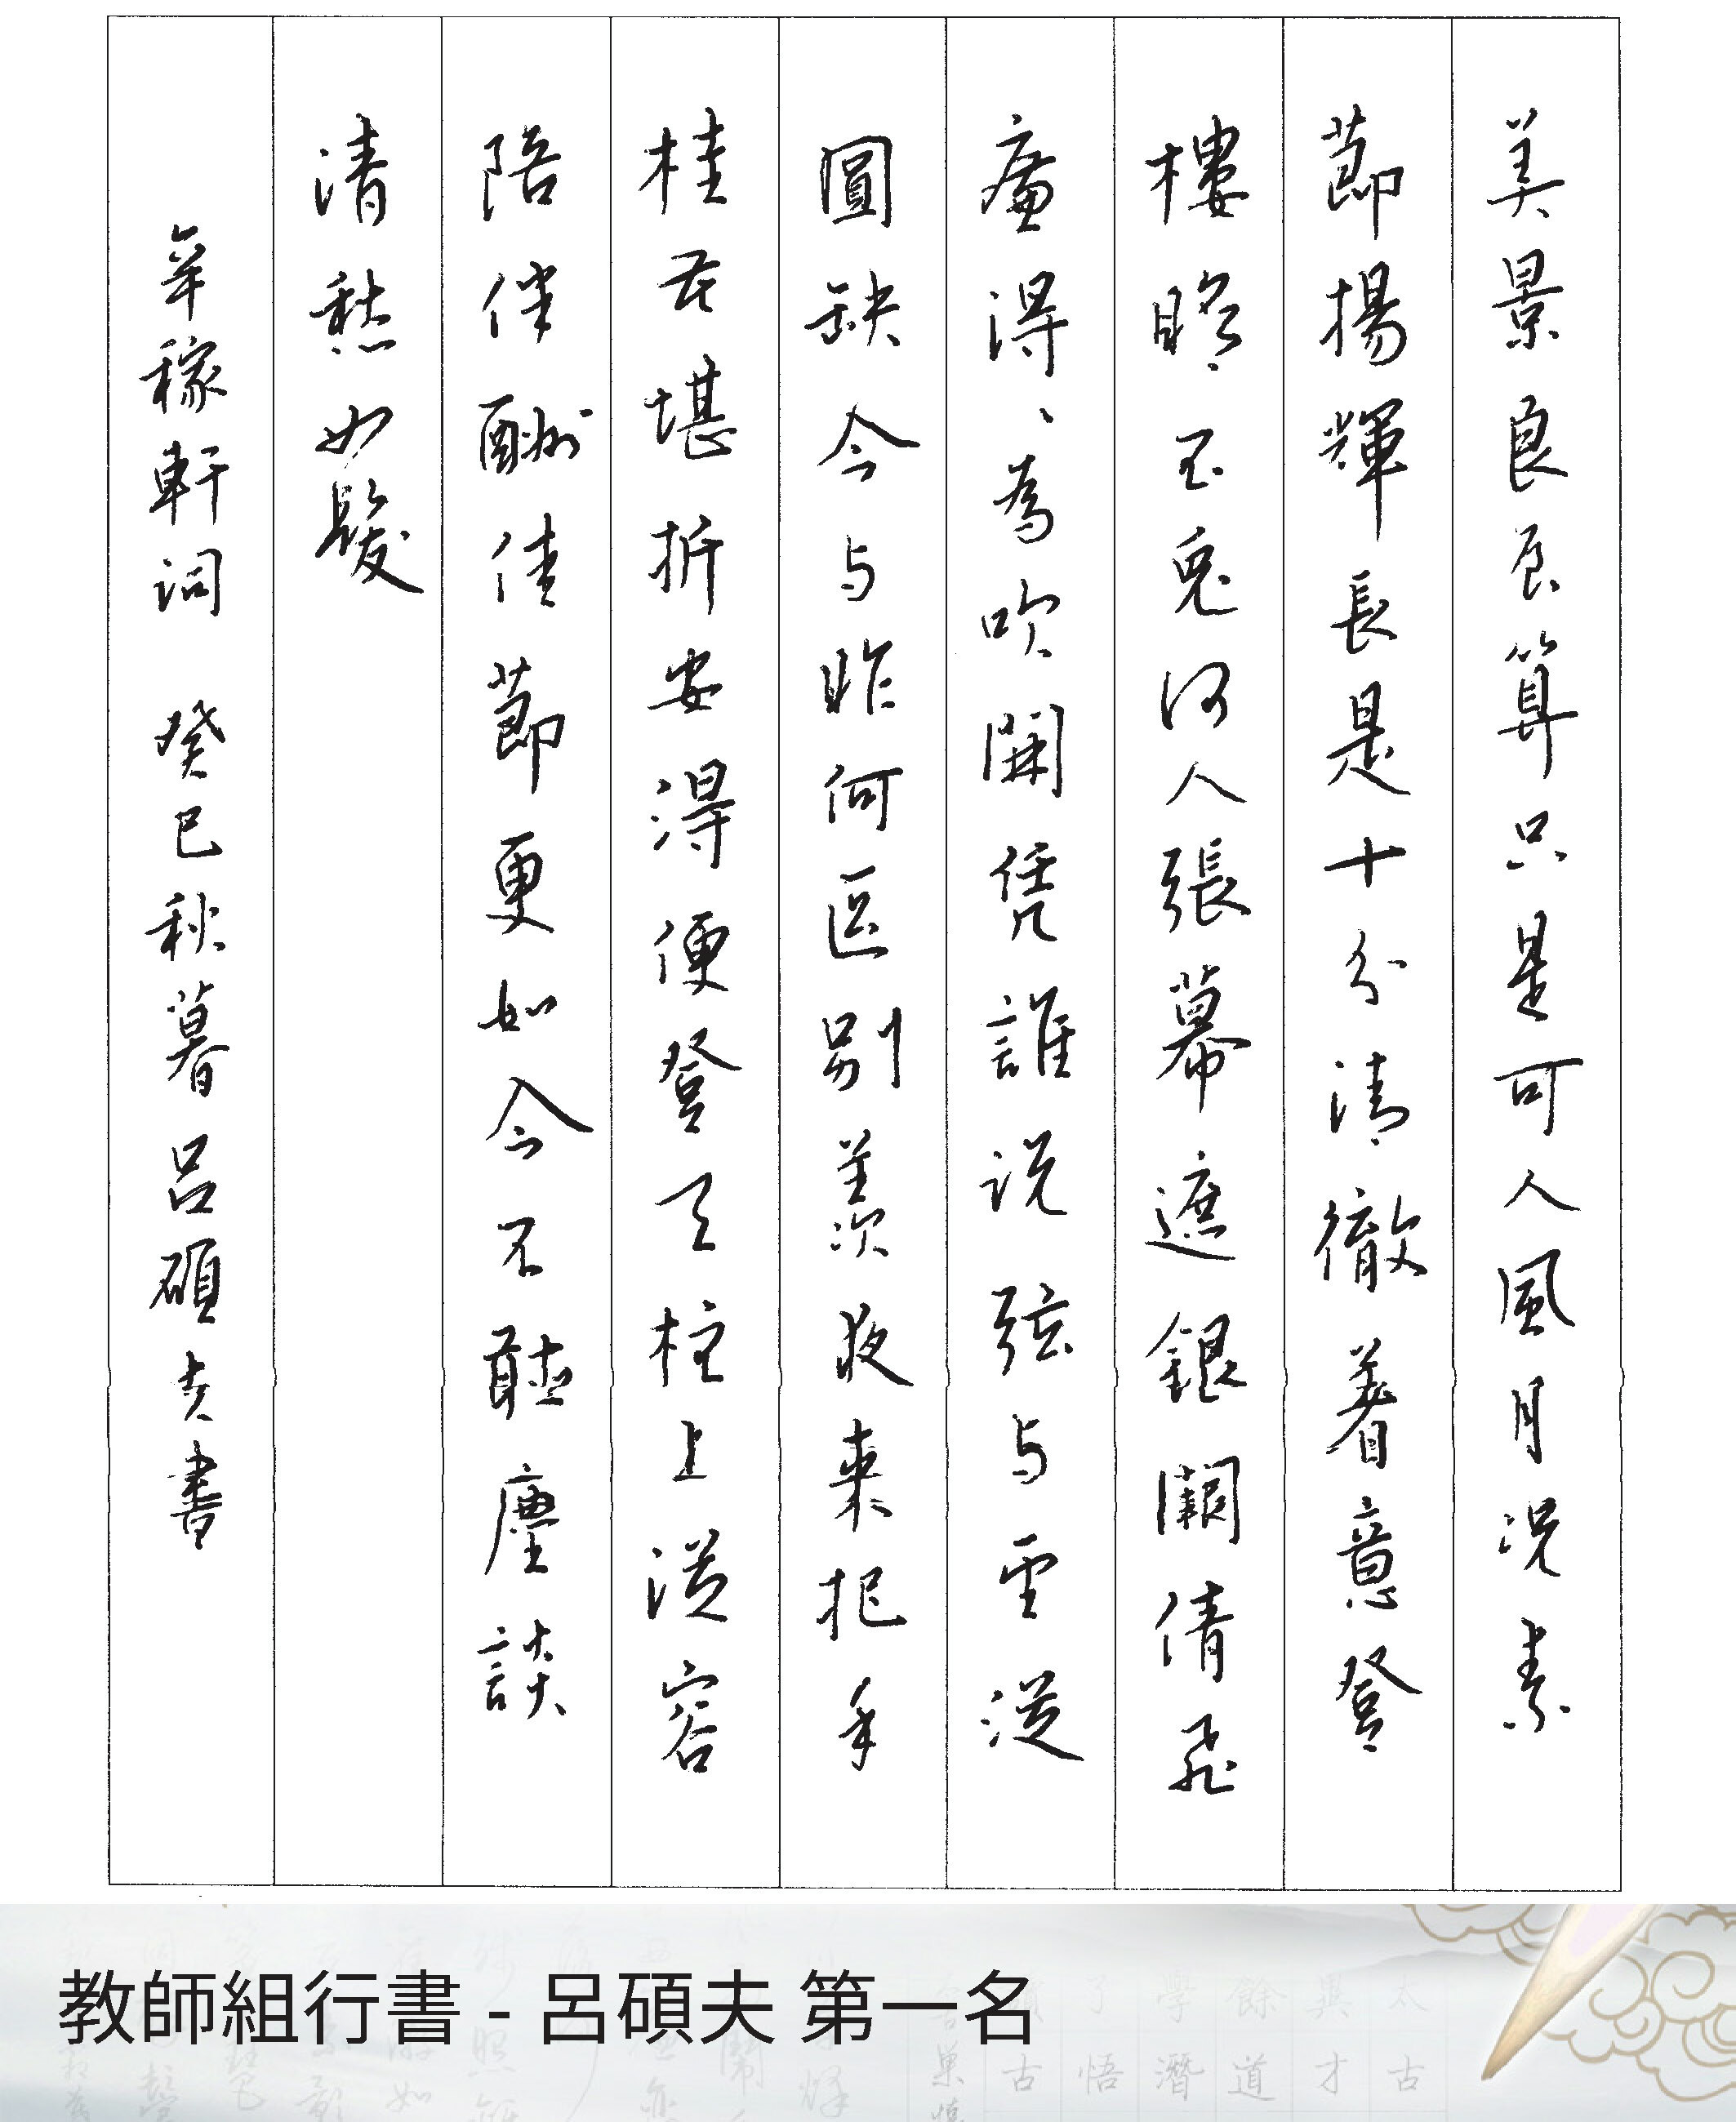 美景良辰算只是可人風月況素
節揚輝長是十分清徹著意登
樓瞻玉兔何人張幕遮銀闕倩飛
廉得、為吹開凭誰說弦与望從
圓缺今与昨何區別羨夜來把手
桂花堪折安得便登天柱上從容
陪伴酬佳節更如今不聽麈談
清愁如髮
辛稼軒詞 癸巳秋暮呂碩夫書
教師組行書 - 呂碩夫 第一名